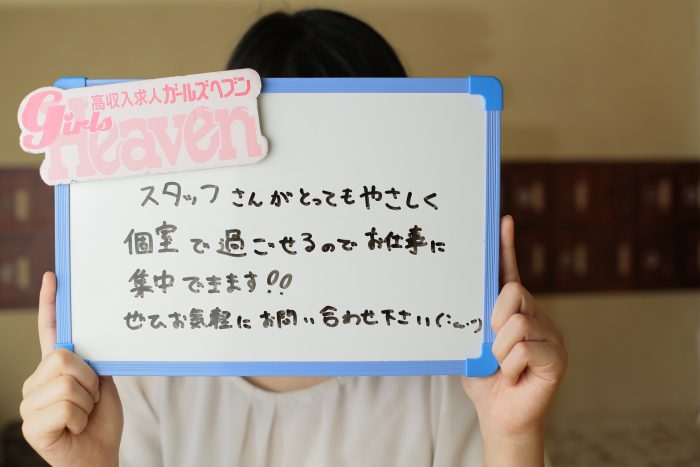 高収入求人ガールズヘブン
Girls
Heaven
スタッフさんがとってもやさしく
個室で過ごせるのでお仕事に
集中できます!!
ぜひお気軽にお問い合わせ下さい(·ᴗ·)